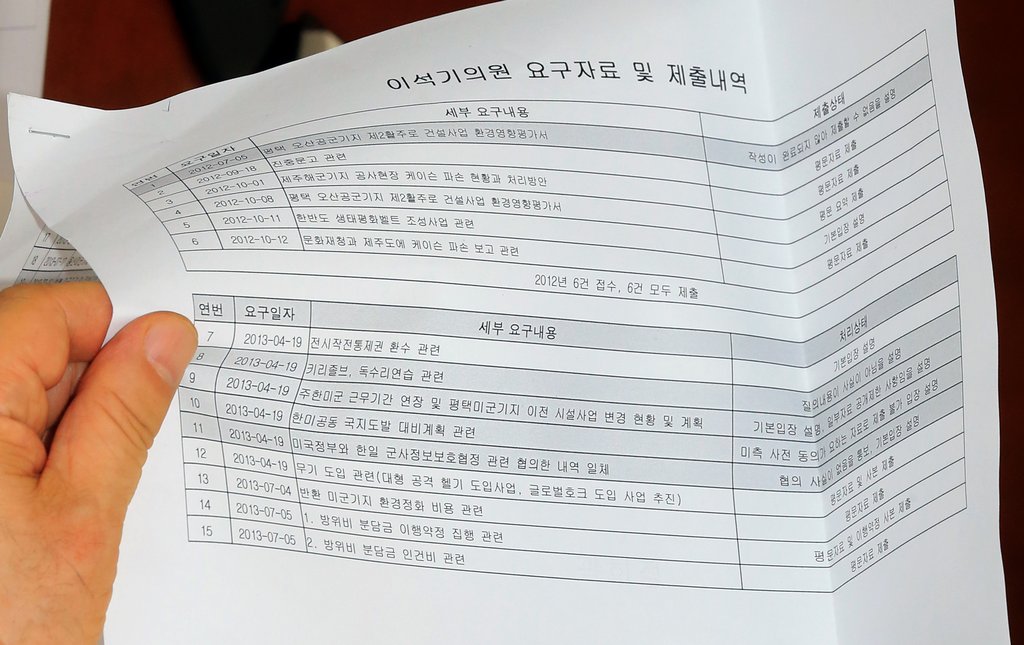 이석기의원 요구자료 및 제출내역
연번 요구일자 세부 요구내용 제출상태
1 2012-07-05 평택 오산공군기지 제2활주로 건설사업 환경영향평가서 작성이 완료되지 않아 제출할 수 없음을 설명
2 2012-09-18 진중문고 관련 평문자료 제출
3 2012-10-01 제주해군기지 공사현장 케이슨 파손 현황과 처리방안 평문자료 제출
4 2012-10-08 평택 오산공군기지 제2활주로 건설사업 환경영향평가서 평문 요약 제출
5 2012-10-11 한반도 생태평화벨트 조성사업 관련 기본입장 설명
6 2012-10-12 문화재청과 제주도에 케이슨 파손 보고 관련 평문자료 제출
2012년 6건 접수, 6건 모두 제출
연번 요구일자 세부 요구내용 처리상태
7 2013-04-19 전시작전통제권 환수 관련 기본입장 설명
8 2013-04-19 키리졸브, 독수리연습 관련 질의내용이 사실이 아님을 설명
9 2013-04-19 주한미군 근무기간 연장 및 평택미군기지 이전 시설사업 변경 현황 및 계획 기본입장 설명, 일부자료 공개제한 사항임을 설명
10 2013-04-19 한미공동 국지도발 대비계획 관련 미측 사전 동의가 요하는 자료로 제출 불가 입장 설명
11 2013-04-19 미국정부와 한일 군사정보보호협정 관련 협의한 내역 일체 협의 사실이 없음을 통보, 기본입장 설명
12 2013-04-19 무기 도입 관련(대형 공격 헬기 도입사업, 글로벌호크 도입 사업 추진) 평문자료 및 사본 제출
13 2013-07-04 반환 미군기지 환경정화 비용 관련 평문자료 제출
14 2013-07-05 1. 방위비 분담금 이행약정 집행 관련 평문자료 및 이행약정 사본 제출
15 2013-07-05 2. 방위비 분담금 인건비 관련 평문자료 제출